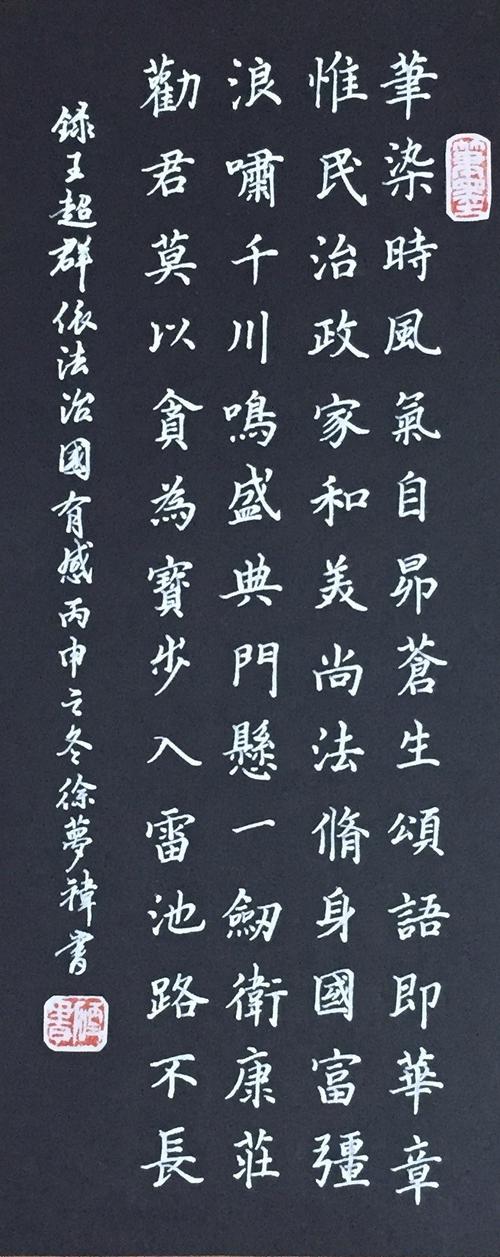 筆染時風氣自昴蒼生頌語即華章
惟民治政家和美尚法脩身國富彊
浪嘯千川鳴盛典門懸一劒衛康莊
勸君莫以貪為寶步入雷池路不長
録王超群依法治國有感丙申之冬徐夢禕書